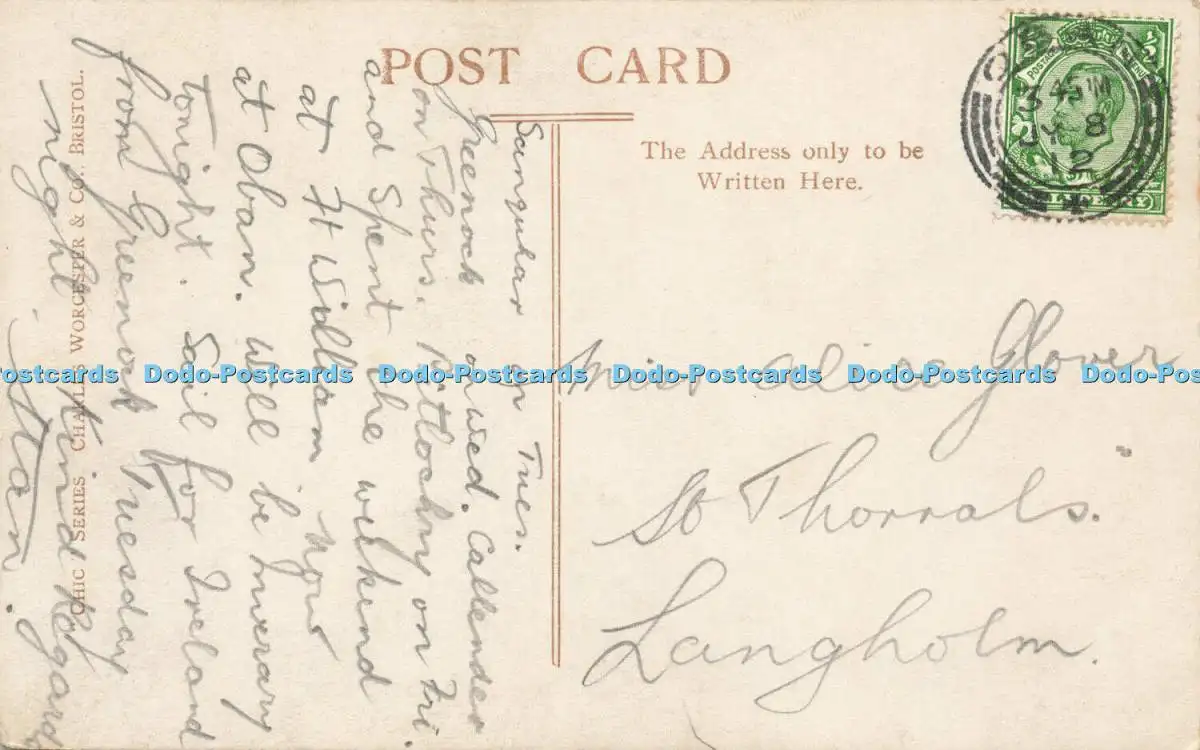 POST CARD
The Address only to be
Written Here.
Sanquhar on Tues.
Greenock on Wed. Callender
on Thurs. Pitlochry on Fri.
and Spent the weekend
at Ft William now
at Oban. will be Inverary
tonight. Sail for Ireland
from Greenock Tuesday
night. Kind Regards
Stan.
Miss Alice Glover
Thorrals.
Langholm.
CHIC SERIES CHARLES WORCESTER & CO., BRISTOL.
JY 8
12
Dodo-Postcards Dodo-Postcards Dodo-Postcards Dodo-Postcards